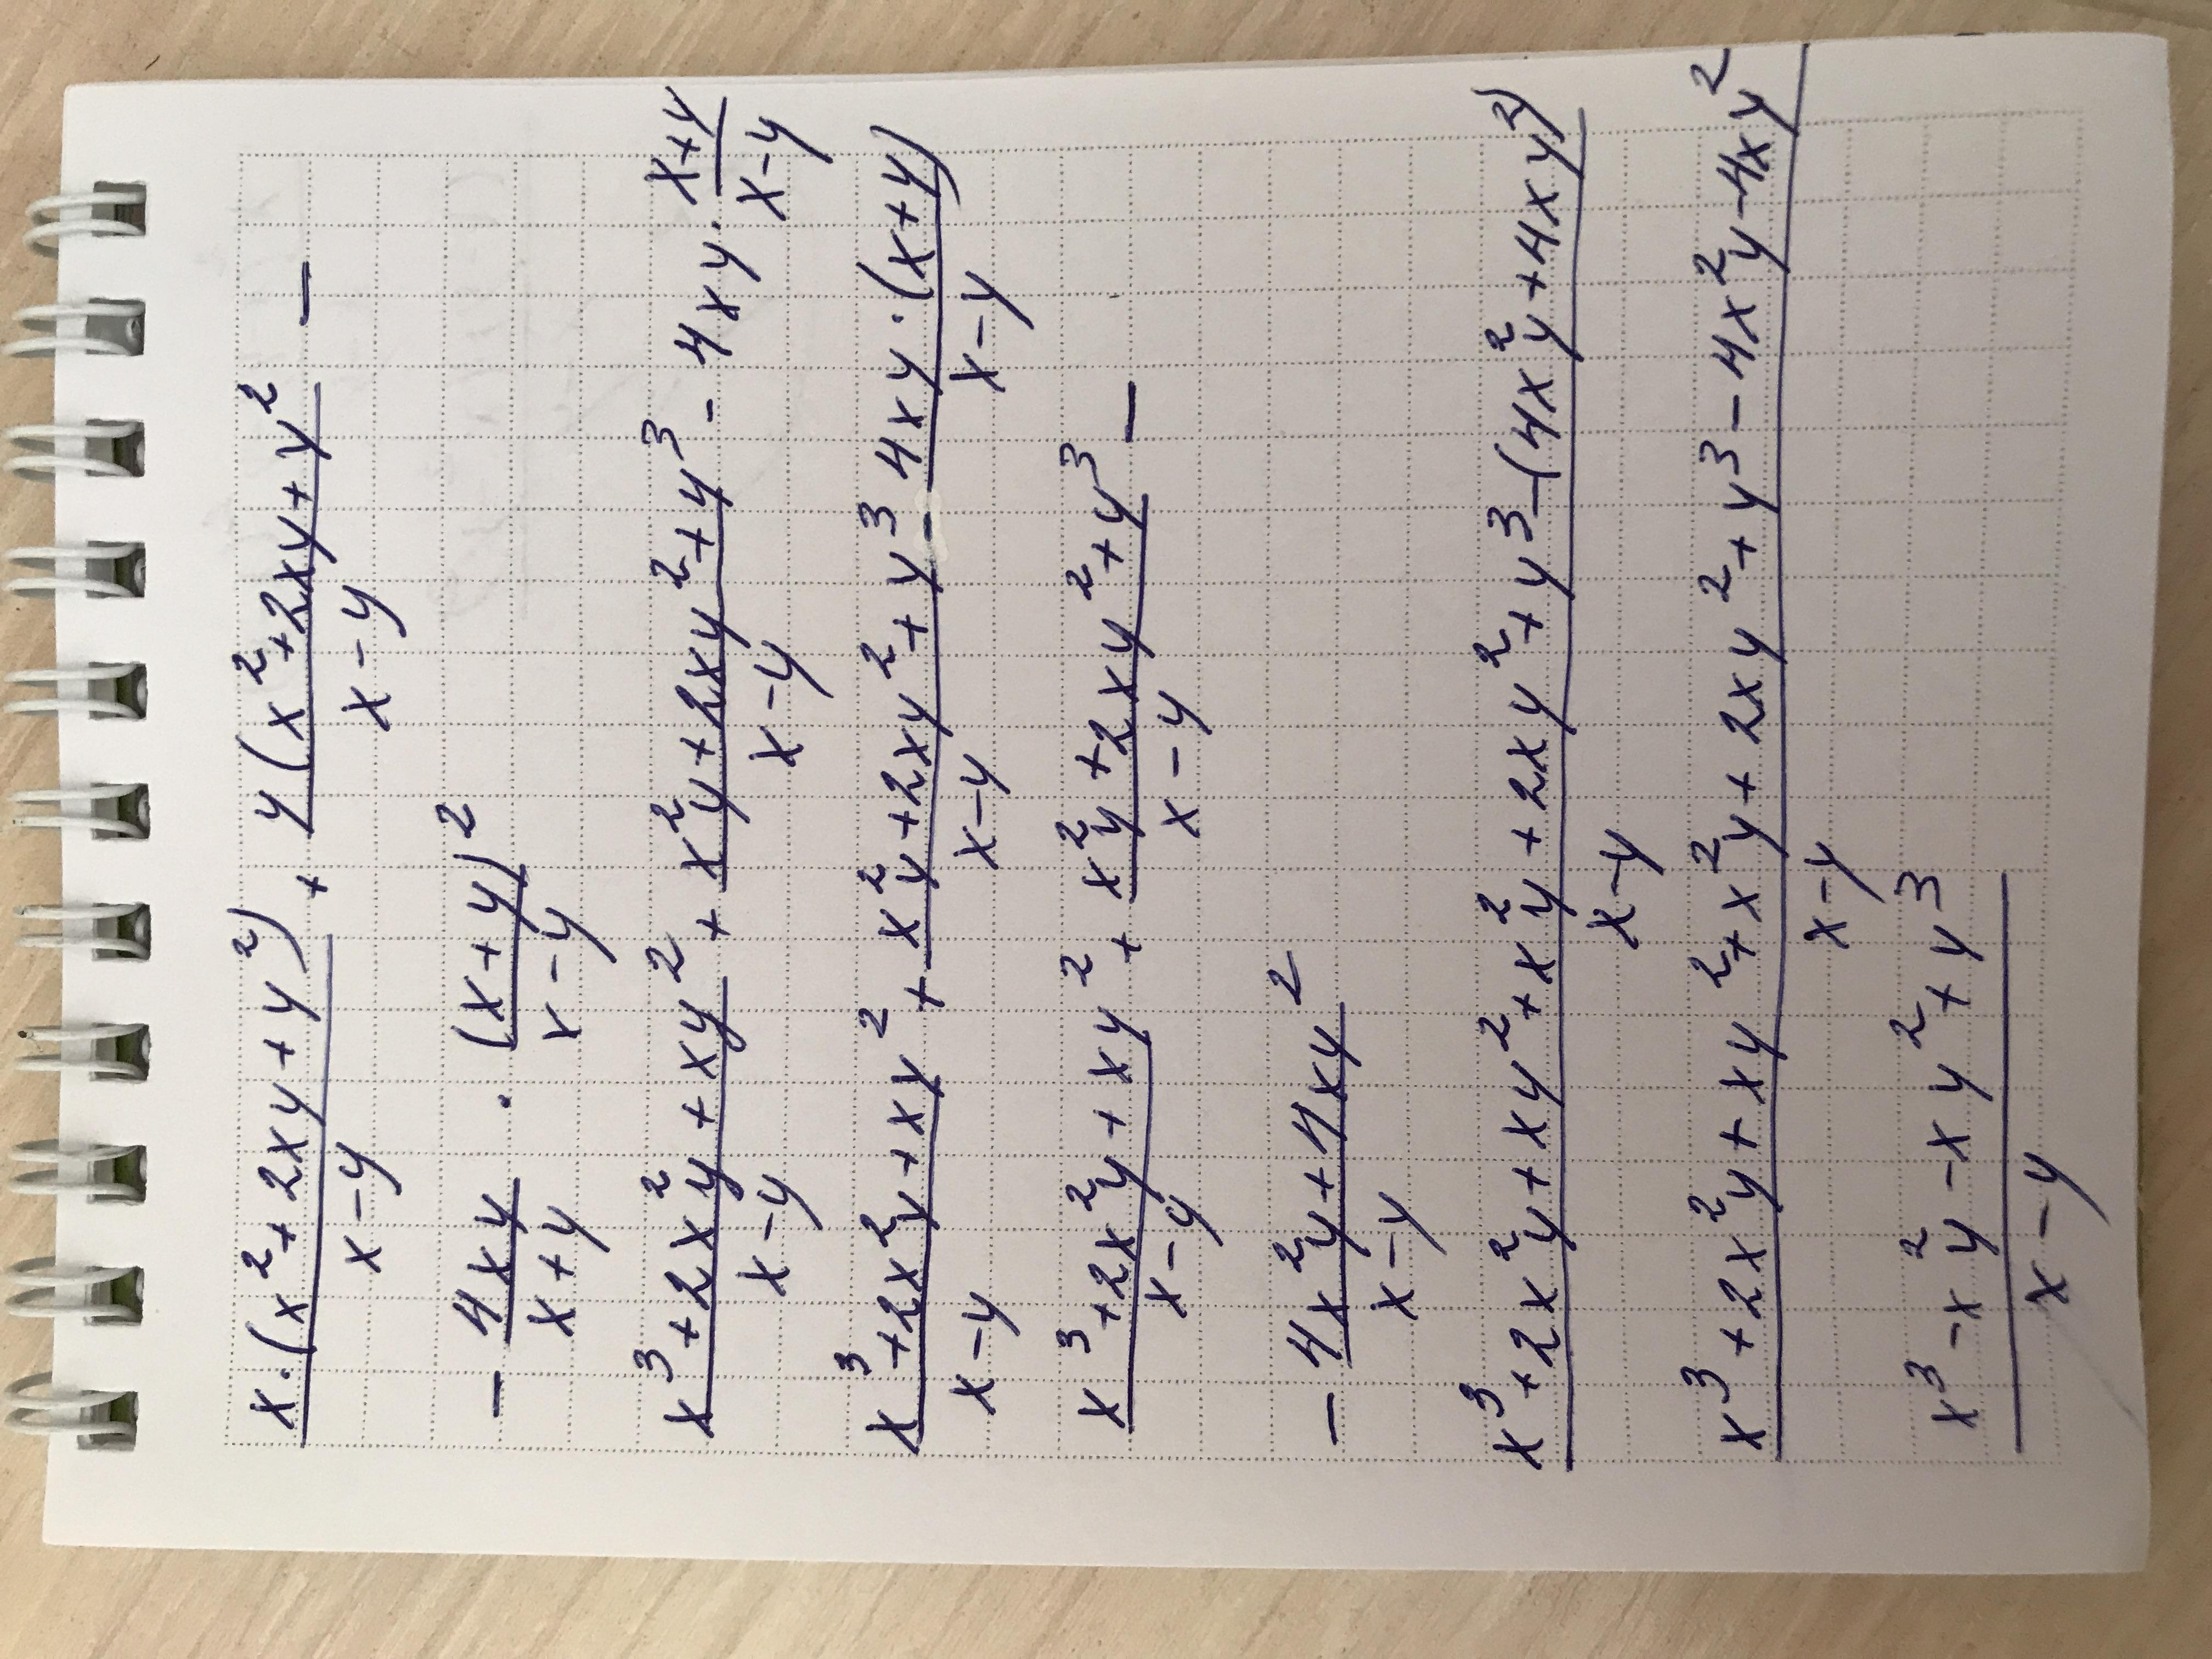 x·(x²+2xy+y²)/x-y + y(x²+2xy+y²/x-y —
— 4xy/x+y · (x+y)²/x-y
x³+2x²y+xy²/x-y + x²y+2xy²+y³/x-y - 4xy · x+y/x-y
x³+2x²y+xy²/x-y + x²y+2xy²+y³/x-y - 4xy·(x+y)/x-y
x³+2x²y+xy²/x-y + x²y+2xy²+y³/x-y —
— 4x²y+4xy²/x-y
x³+2x²y+xy²+x²y+2xy²+y³-(4x²y+4xy²)/x-y
x³+2x²y+xy²+x²y+2xy²+y³-4x²y-4xy²/x-y
x³-x²y-xy²+y³/x-y